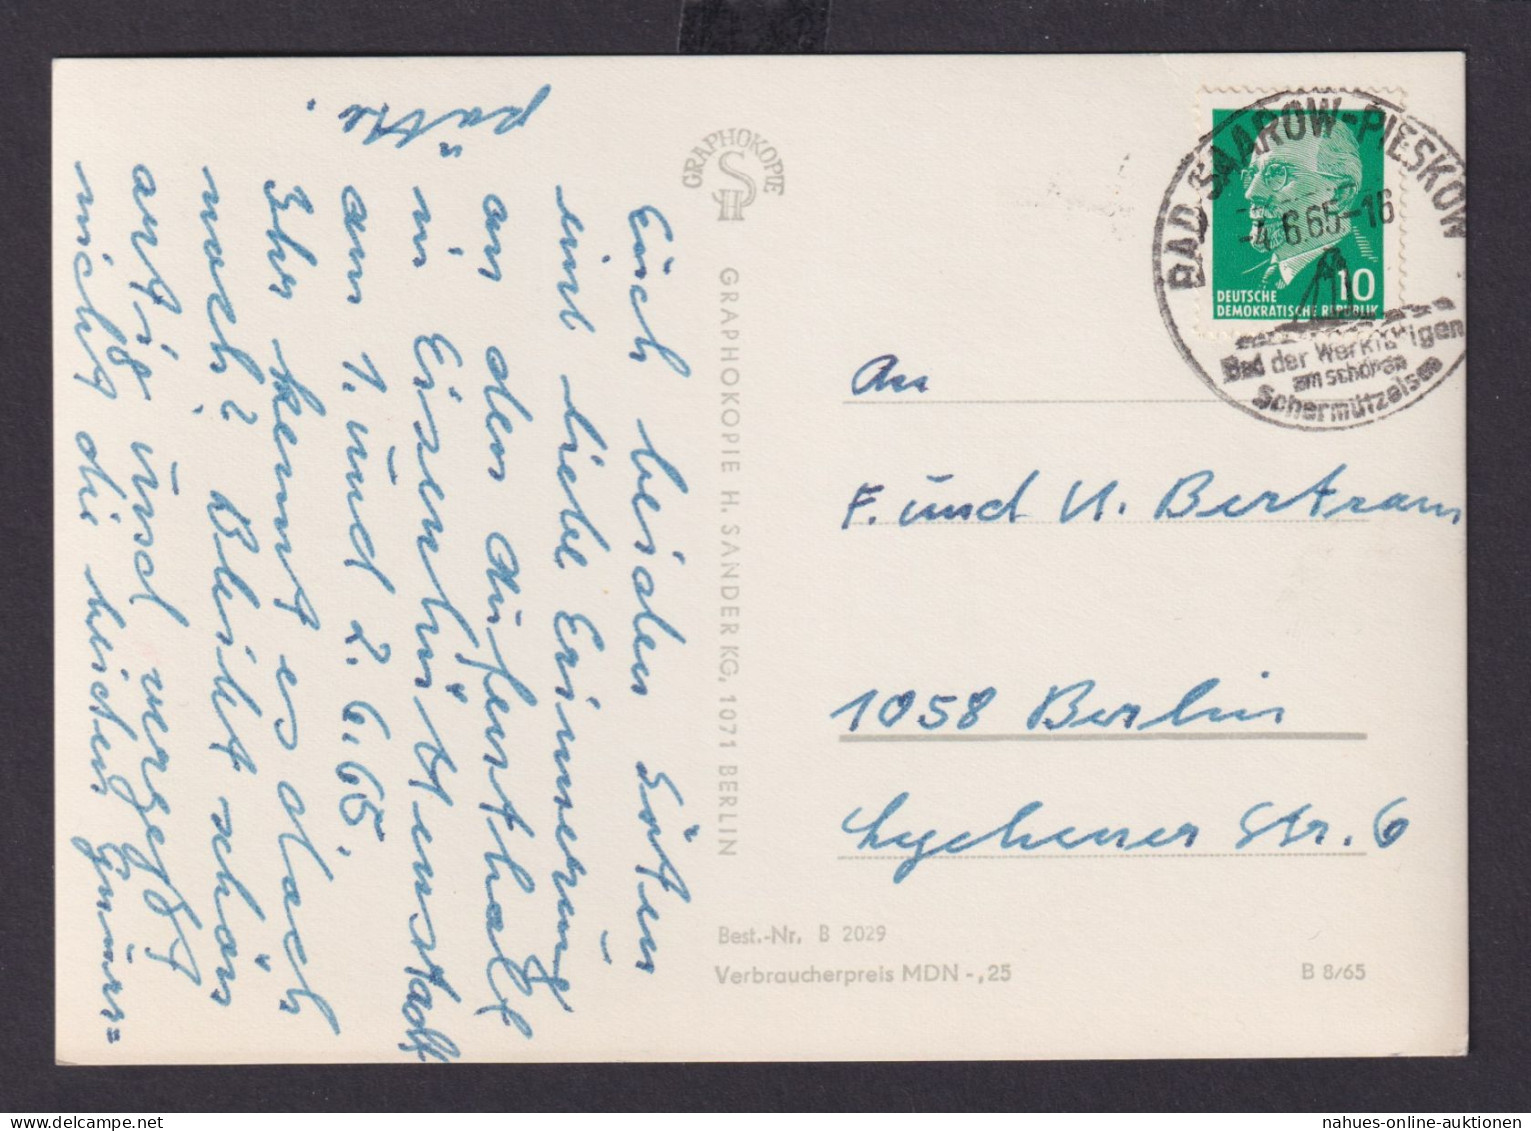 Euch beiden Guten
eine liebe Erinnerung
an den Aufenthalt
in Eisenhüttenstadt
am 1. und 2. 6. 65.
Ihr kennt es doch
noch? Bleibt schön
artig und vergeßt
nicht die beiden
GRAPHOKOPIE
H S
GRAPHOKOPIE H. SANDER KG, 1071 BERLIN
BAD SAAROW-PIESKOW
-4.6.65.-16
Bad der Werktätigen
am schönen
Scharmützelsee
10
DEUTSCHE
DEMOKRATISCHE REPUBLIK
An
F. und U. Bertram
1058 Berlin
Lychener Str. 6
Best.-Nr. B 2029
Verbraucherpreis MDN -,25
B 8/65
nahues-online-auktionen